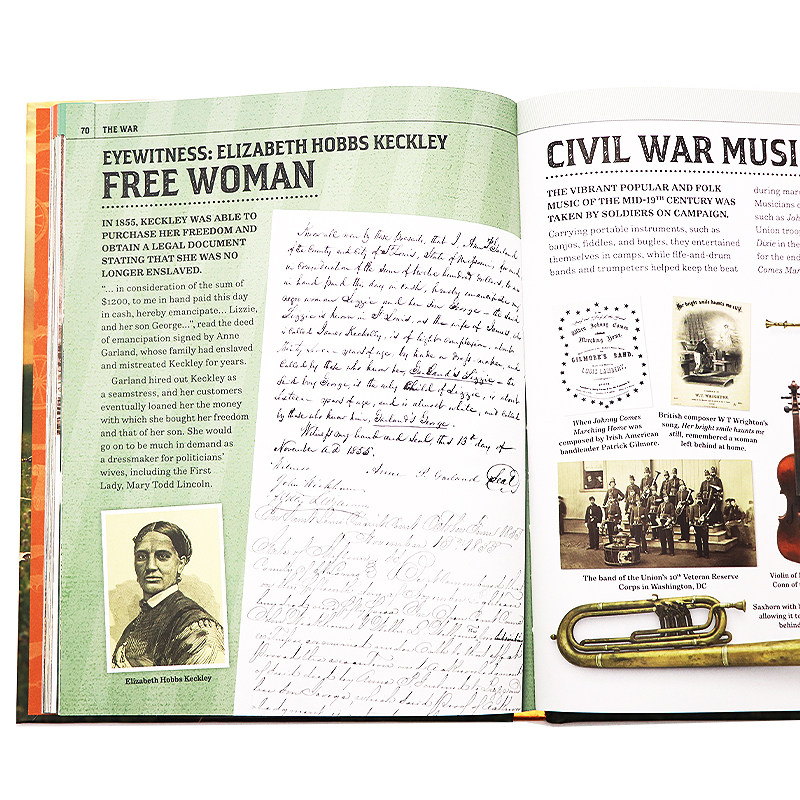 70 THE WAR
EYEWITNESS: ELIZABETH HOBBS KECKLEY
FREE WOMAN
IN 1855, KECKLEY WAS ABLE TO
PURCHASE HER FREEDOM AND
OBTAIN A LEGAL DOCUMENT
STATING THAT SHE WAS NO
LONGER ENSLAVED.
"... in consideration of the sum of
$1200, to me in hand paid this day
in cash, hereby emancipate... Lizzie,
and her son George...", read the deed
of emancipation signed by Anne
Garland, whose family had enslaved
and mistreated Keckley for years.
Garland hired out Keckley as
a seamstress, and her customers
eventually loaned her the money
with which she bought her freedom
and that of her son. She would
go on to be much in demand as
a dressmaker for politicians'
wives, including the First
Lady, Mary Todd Lincoln.
Elizabeth Hobbs Keckley
Know all men by these presents, that I, Anne P. Garland
of the County and City of St Louis, State of Missouri, for and
in consideration of the sum of twelve hundred dollars, to me
in hand paid this day in cash, hereby emancipate my
negro woman Lizzie and her son George – the said
Lizzie is known in St Louis, as the wife of James, who
is called James Keckley, is of light complexion, about
thirty seven years of age, by trade a dress maker, and
called by those who know her, Garland's Lizzie – the
said boy George, is the only child of Lizzie, is about
sixteen years of age, and is almost white, and called
by those who know him, Garland's George.
Witness my hand and Seal, this 13th day of
November A.D. 1855.
Witness Anne P. Garland (Seal)
John Wickham
CIVIL WAR MUSI
THE VIBRANT POPULAR AND FOLK
MUSIC OF THE MID-19TH CENTURY WAS
TAKEN BY SOLDIERS ON CAMPAIGN.
Carrying portable instruments, such as
banjos, fiddles, and bugles, they entertained
themselves in camps, while fife-and-drum
bands and trumpeters helped keep the beat
during mar
Musicians
such as Joh
Union troop
Dixie in the
for the end
Comes Mar
When Johnny Comes
Marching Home.
GILMORE'S BAND,
LOUIS LAMBERT,
When Johnny Comes
Marching Home was
composed by Irish American
bandleader Patrick Gilmore.
Her bright smile haunts me still.
W.T. WRIGHTON
British composer W T Wrighton's
song, Her bright smile haunts me
still, remembered a woman
left behind at home.
The band of the Union's 10th Veteran Reserve
Corps in Washington, DC
Violin of
Conn of
Saxhorn with
allowing it to
behin